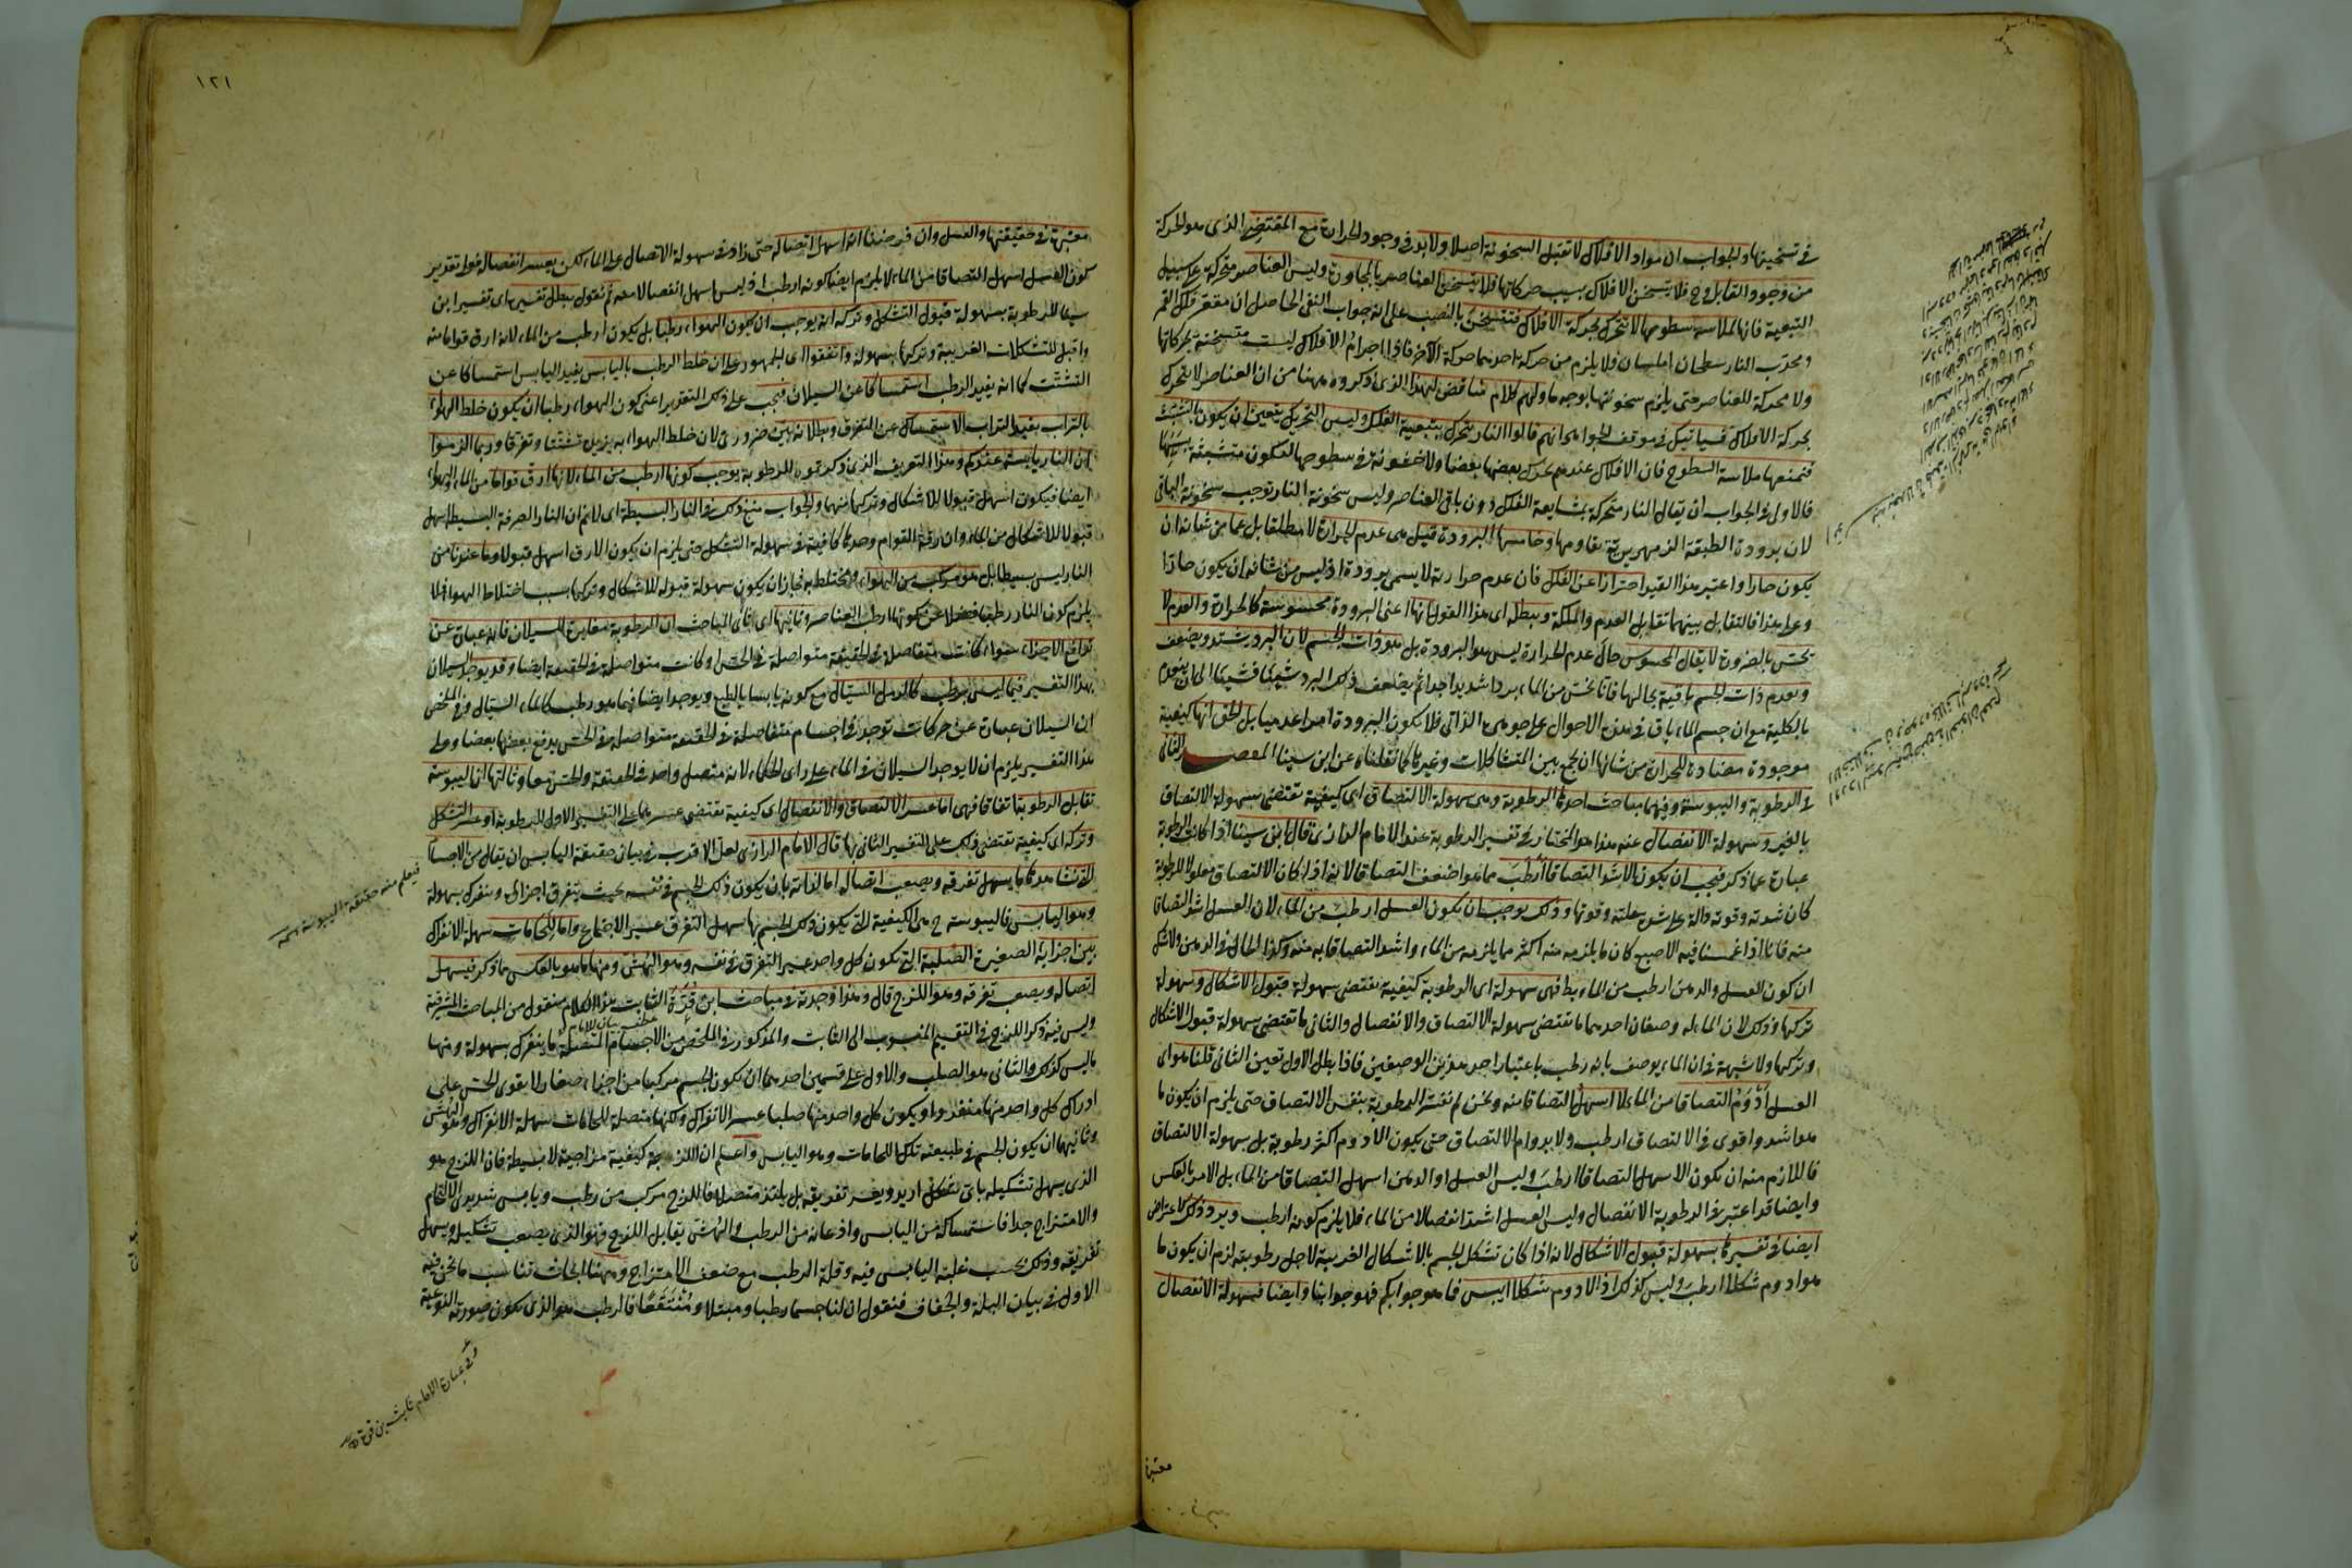 في تسخينها والجواب ان مواد الافلاك لا تقبل السخونة اصلا ولا بد في وجود الحرارة مع المقتضي الذي هو الحركة
من وجود القابل وح فلا يتسخن الافلاك بسبب حركاتها فلا يتسخن العناصر بالمجاورة وليس العناصر متحركة على سبيل
التبعية فانها لملاسة سطوحها لا تتحرك بحركة الافلاك فتتسخن بالنصب على انه جواب النفي الحاصل ان مقعر فلك القمر
ومحدب النار سطحان املسان فلا يلزم من حركة احدهما حركة الآخر فاذا اجرام الافلاك ليست متسخنة بحركاتها
ولا محركة للعناصر حتى يلزم سخونتها بوجه ما ولهم كلام مناقض لهذا الذي ذكروه ههنا من ان العناصر لا تتحرك
بحركة الافلاك فسيأتيك في موقف الجواهر انهم قالوا النار يتحرك بتبعية الفلك وليس التحريك يتعين ان يكون بالتشبث
فتمنعها ملاسة السطوح فان الافلاك عندهم يحرك بعضها بعضا ولا خشونة في سطوحها لتكون متشبثة بسببها
فالاولى في الجواب ان يقال النار متحركة بمشايعة الفلك دون باقي العناصر وليس سخونة النار توجب سخونة الباقي
لان برودة الطبقة الزمهريرية تقاومها وخامسها البرودة قيل هي عدم الحرارة لا مطلقا بل عما من شانه ان
يكون حارا واعتبر هذا القيد احترازا عن الفلك فان عدم حرارته لا يسمى برودة اذ ليس من شانه ان يكون حارا
وعلى هذا فالتقابل بينهما تقابل العدم والملكة ويبطله اى هذا القول انها اعنى البرودة محسوسة كالحرارة والعدم لا
يحس بالضرورة لا يقال المحسوس حال عدم الحرارة ليس هو البرودة بل هو ذات الجسم لان البرد يشتد ويضعف
ويعدم ذات الجسم باقية بحالها فانا نحس من الماء بردا شديدا جدا ثم يضعف ذلك البرد شيئا فشيئا الى ان ينعدم
بالكلية مع ان جسم الماء باق في هذه الاحوال على جوهره الذاتى فلا يكون البرودة امرا عدميا بل الحق انها كيفية
موجودة مضادة للحرارة من شانها ان تجمع بين المتشاكلات وغيرها كما نقلناه عن ابن سينا المقصد الثانى
في الرطوبة واليبوسة وفيهما مباحث احدها الرطوبة وهى سهولة الالتصاق اى كيفية تقتضى سهولة الالتصاق
بالغير وسهولة الانفصال عنه هذا هو المختار في تفسير الرطوبة عند الامام الرازى قال ابن سينا اذا كانت الرطوبة
عبارة عما ذكر فيجب ان يكون الاشد التصاقا ارطب مما هو اضعف التصاقا لانه اذا كان الالتصاق معلولا للرطوبة
كان شدته وقوته دالة على شدة علته وقوتها وذلك يوجب ان يكون العسل ارطب من الماء لان العسل اشد التصاقا
منه فانا اذا غمسنا فيه الاصبع كان ما يلزمه منه اكثر مما يلزمه من الماء واشد التصاقا به منه وكذا الحال في الدهن ولا شك
ان كون العسل والدهن ارطب من الماء بط فهى سهولة اى الرطوبة كيفية تقتضى سهولة قبول الاشكال وسهولة
تركها وذلك لان الماء له وصفان احدهما ما تقتضى سهولة الالتصاق والانفصال والثانى ما تقتضى سهولة قبول الاشكال
وتركها ولا شبهة في ان الماء يوصف بانه رطب باعتبار احد هذين الوصفين فاذا بطل الاول تعين الثانى قلنا هو اى
العسل أدْوَمُ التصاقا من الماء لا اسهلُ التصاقا منه ونحن لم نفسر الرطوبة بنفس الالتصاق حتى يلزم ان يكون ما
هو اشد واقوى في الالتصاق ارطب ولا بدوام الالتصاق حتى يكون الادوم اكثر رطوبة بل بسهولة الالتصاق
فاللازم منه ان يكون الاسهل التصاقا ارطبَ وليس العسل او الدهن اسهل التصاقا من الماء بل الامر بالعكس
وايضا قد اعتبر في الرطوبة الانفصال وليس العسل اشد انفصالا من الماء فلا يلزم كونه ارطب ويرد ذلك الاعتراض
ايضا في تفسيرها بسهولة قبول الاشكال لانه اذا كان تشكل الجسم بالاشكال الغريبة لاجل رطوبته لزم ان يكون ما
هو ادوم شكلا ارطب وليس كذلك اذ الادوم شكلا ايبس فما هو جوابكم فهو جوابنا وايضا فسهولة الانفصال
معتبرة
١٢١
معتبرة في حقيقتها والعسل وان فرضنا انه اسهل اتصاله حتى زاد في سهولة الاتصال على الماء لكن يعسر انفصاله فعلى تقدير
كون العسل اسهل التصاقا من الماء لا يلزم ايضا كونه ارطب اذ ليس اسهل انفصالا منه ثم نقول يبطل تفسيره اى تفسير ابن
سينا للرطوبة بسهولة قبول التشكل وتركه انه يوجب ان يكون الهواء رطبا بل يكون ارطب من الماء لانه ارق قواما منه
واقبل للتشكلات الغريبة وتركها بسهولة واتفقوا اى الجمهور على ان خلط الرطب باليابس يفيد اليابس استمساكا عن
التشتت كما انه يفيد الرطب استمساكا عن السيلان فيجب على ذلك التقدير اعنى كون الهواء رطبا ان يكون خلط الهواء
بالتراب يفيد التراب الاستمساك عن التفرق وبطلانه بين ضرورى لان خلط الهواء به يزيده تشتتا وتفرقا وربما الزموا
ان النار يابسة عندكم وهذا التعريف الذى ذكرتموه للرطوبة يوجب كونها ارطب من الماء لانها ارق قواما من الماء والهواء
ايضا فيكون اسهل قبولا للاشكال وتركها منهما والجواب منع ذلك في النار البسيطة اى لا نم ان النار الصرفة البسيطة اسهل
قبولا للاشكال من الماء وان رقة القوام وحدها كافية في سهولة التشكل حتى يلزم ان يكون الارق اسهل قبولا وما عندنا من
النار ليس بسيطا بل هو مركب من الهواء ومختلط به فجاز ان يكون سهولة قبوله للاشكال وتركها بسبب اختلاط الهواء فلا
يلزم كون النار رطبة فضلا عن كونها ارطب العناصر وثانيها اى ثانى المباحث ان الرطوبة مغايرة للسيلان فانه عبارة عن
تدافع الاجزاء سواء كانت متفاصلة في الحقيقة متواصلة في الحس او كانت متواصلة في الحقيقة ايضا وقد يوجد السيلان
بهذا التفسير فيما ليس برطب كالرمل السيال مع كونه يابسا بالطبع ويوجد ايضا فيما هو رطب كالماء السيال وفي الملخص
ان السيلان عبارة عن حركات توجد في اجسام متفاصلة في الحقيقة متواصلة في الحس يدفع بعضها بعضا وعلى
هذا التفسير يلزم ان لا يوجد السيلان في الماء على راى الحكماء لانه متصل واحد في الحقيقة والحس معا وثالثها ان اليبوسة
تقابل الرطوبة اتفاقا فهى اما عسر الالتصاق والانفصال اى كيفية تقتضى عسرهما على التفسير الاول للرطوبة او عسر التشكل
وتركه اى كيفية تقتضى ذلك على التفسير الثانى لها قال الامام الرازى لعل الاقرب في بيان حقيقة اليابس ان يقال من الاجسام
التى نشاهدها ما يسهل تفرقه ويصعب اتصاله اما لذاته بان يكون ذلك الجسم في نفسه بحيث يتفرق اجزاؤه وينفرك بسهولة
وهو اليابس فاليبوسة ح هى الكيفية التى يكون ذلك الجسم بها سهل التفرق عسير الاجتماع واما للحامات سهلة الانفراك
بين اجزائه الصغيرة الصلبة التى يكون كل واحد عسير التفرق في نفسه وهو الهش ومنها ما هو بالعكس مما ذكر فيسهل
اتصاله ويصعب تفرقه وهو اللزج قال وهذا وجدته في مباحث ابن قُرّة الثابت هذا الكلام منقول من المباحث المشرقية
وليس فيه ذكر اللزج في التقسيم المنسوب الى الثابت والمذكور في الملخص من الاجسام المتصلة ما ينفرك بسهولة ومنها
ما ليس كذلك والثانى هو الصلب والاول على قسمين احدهما ان يكون الجسم مركبا من اجزاء صغار لا يقوى الحس على
ادراك كل واحد منها منفردا ويكون كل واحد منها صلبا عسر الانفراك ولكنها متصلة للحامات سهلة الانفراك وهو الهش
وثانيهما ان يكون الجسم في طبيعته تلك اللحامات وهو اليابس واعلم ان اللزوجة كيفية مزاجية لا بسيطة فان اللزج هو
الذى يسهل تشكيله باى شكل اريد ويعسر تفريقه بل يمتد متصلا فاللزج مركب من رطب ويابس شديدى الالتحام
والامتزاج جدا فاستمساكه من اليابس واذعانه من الرطب والهش يقابل اللزج فهو الذى يصعب تشكيله ويسهل
تفريقه وذلك بحسب غلبة اليابس فيه وقلة الرطب مع ضعف الامتزاج وههنا ابحاث تناسب ما نحن فيه
الاول في بيان البلة والجفاف فنقول ان لنا جسما رطبا ومبتلا ومُنْتَقَعًا فالرطب هو الذى يكون صورته النوعية
فيعلم منه حقيقة اليبوسة
عبارة الامام ثابت بن قرة